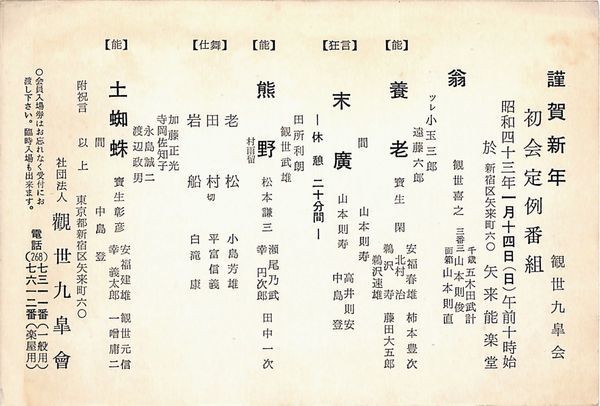 謹賀新年
初会定例番組
観世九皐会
昭和四十三年一月十四日(日)午前十時始
於 新宿区矢来町六〇 矢来能楽堂
翁
観世喜之
三番三 山本則俊
千歳 五木田武計
面箱 山本則直
ツレ 小玉三郎
遠藤六郎
【能】
養老
宝生閑
安福春雄 柿本豊次
北村治
鵜沢寿 藤田大五郎
鵜沢速雄
間 山本則寿
【狂言】
末廣
山本則寿
高井則安
中島登
―休憩 二十分間―
観世武雄
田所利朗
【能】
熊野
村雨留
松本謙三
瀬尾乃武
幸円次郎
田中一次
【仕舞】
老松 小島芳雄
田村切 平富信義
岩船 白滝康
加藤正光
寺岡佐知子
永島誠二
渡辺政男
【能】
土蜘蛛
宝生彰彦
安福建雄 観世元信
幸義太郎 一噌庸二
間 中島登
附祝言
以上
東京都新宿区矢来町六〇
社団法人 觀世九皐會
電話(268)七三一一番(一般用)
七六一二番(楽屋用)
○会員入場券はお忘れなく受付にお
渡し下さい。臨時入場も出来ます。